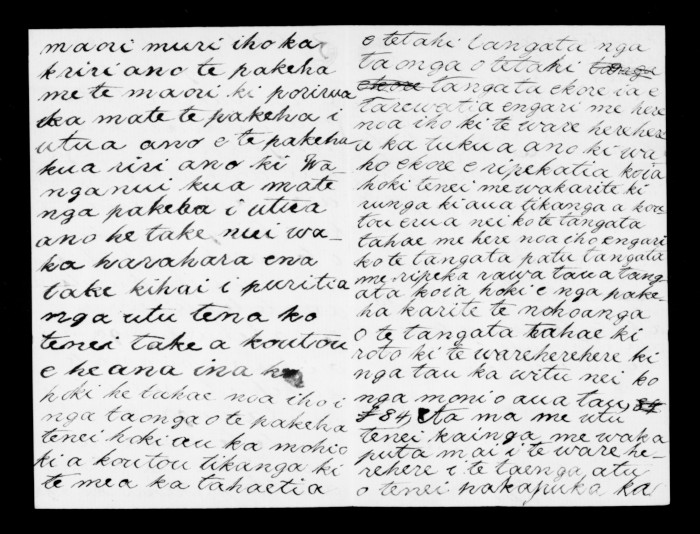 maori muri iho ka
kriri ano te pakeha
me te maori ki porirua
ka mate te pakeha i
utua ano e te pakeha
kua riri ano ki Wa-
nganui kua mate
nga pakeha i utua
ano he take nui wa-
ka harahara ena
take kihai i puritia
nga utu tena ko
tenei take a koutou
e he ana ina
hoki he tahae noa iho i
nga taonga o te pakeha
tenei hoki au ka mohio
ki a koutou tikanga ki
te mea ka tahaetia
e tetahi tangata nga
taonga o tetahi
tangata ekore ia e
tarewatia engari me here
noa iho ki te ware herehere
a ka tukua ano ki wa
ho ekore e ripekatia koia
hoki tenei me wakarite ki
runga ki aua tikanga a kou
tou erua nei ko te tangata
tahae me here noa iho engari
ko te tangata patu tangata
me ripeka rawa taua tang
ata koia hoki e nga pake-
ha karite te nohoanga
o te tangata tahae ki
roto ki te wareherehere ki
nga tau ka witu nei ko
nga moni o aua tau, 84
£84, Ka ma me utu
tenei kainga me waka
puta mai i te ware he-
rehere i te taenga atu
o tenei pukapuka ka